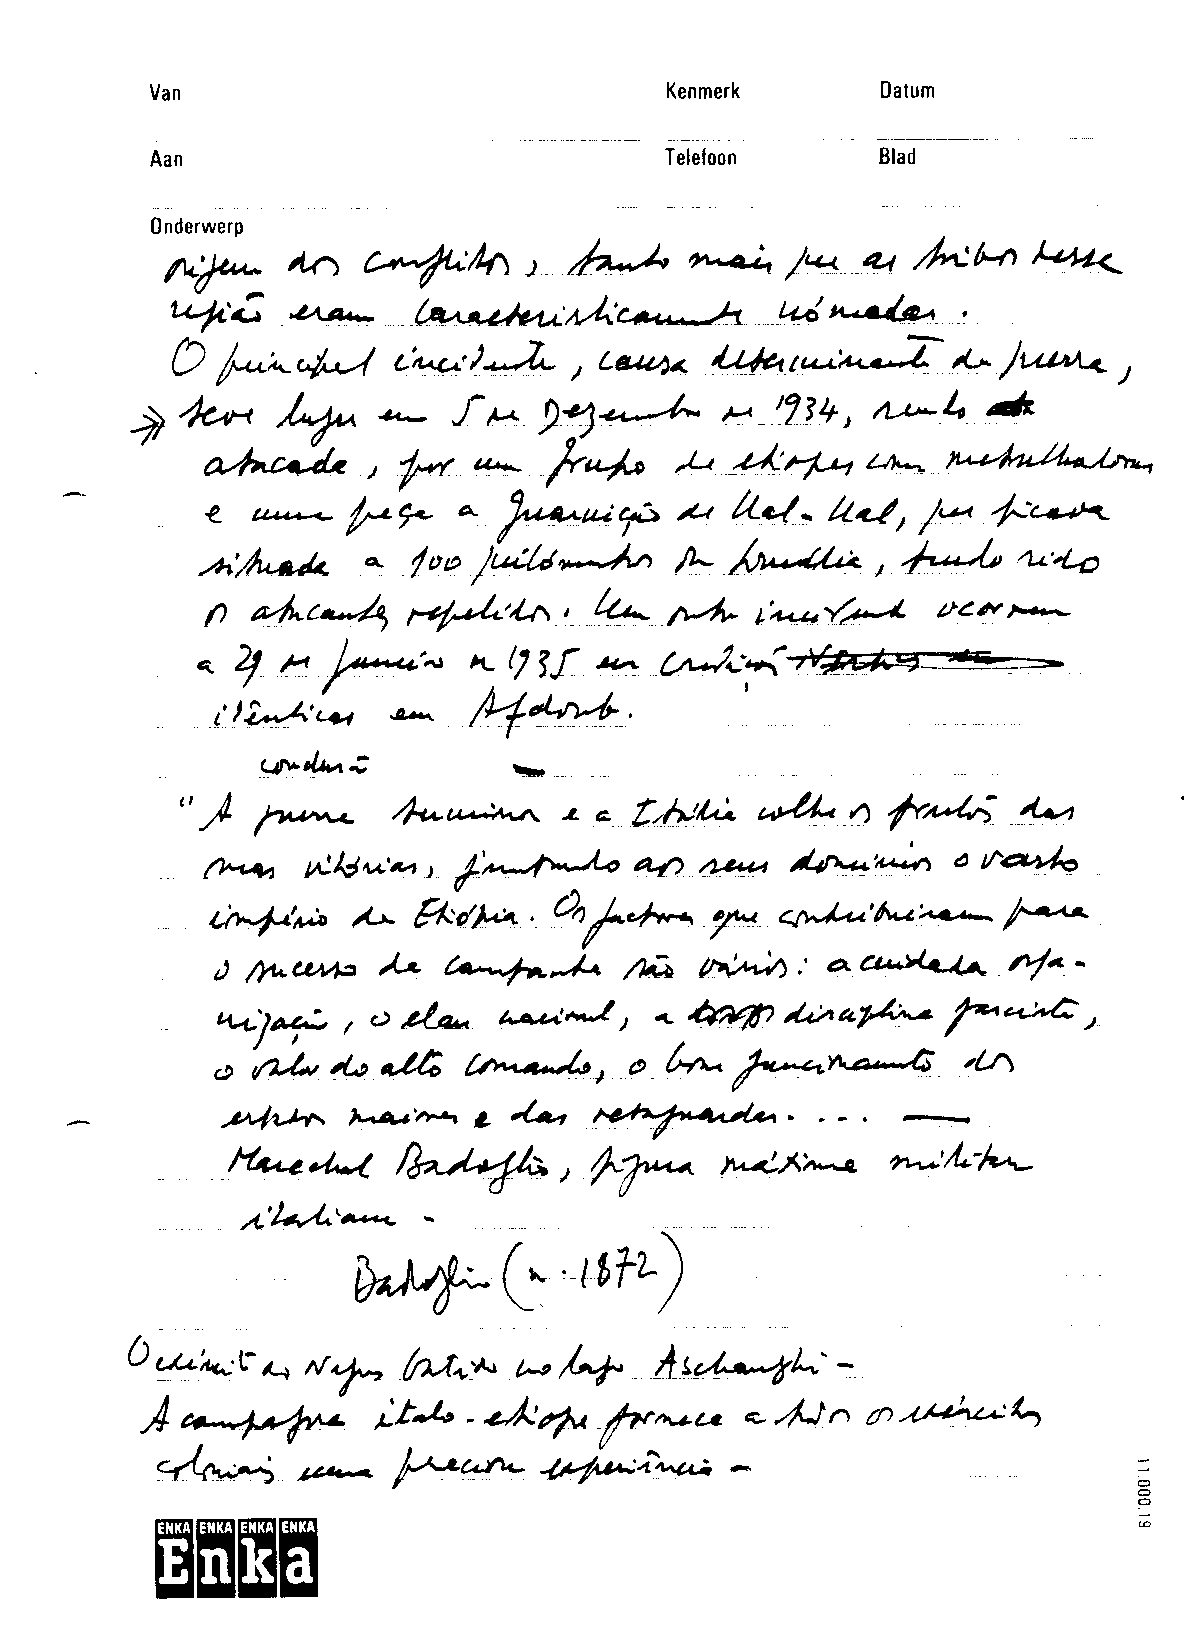 Van Kenmerk Datum
Aan Telefoon Blad
Onderwerp
origem dos conflitos, tanto mais que as tribos desse
região eram caracteristicamente nómadas.
O principal incidente, causa determinante da guerra,
teve lugar em 5 de Dezembro de 1934, sendo
atacada, por um grupo de etiopes com metralhadoras
e uma peça a Guarnição de Ual-Ual, que ficava
situada a 100 quilómetros da Somália, tendo sido
os atacantes repelidos. Um outro incidente ocorreu
a 29 de Janeiro de 1935 em condições
idênticas em Afdoub.
"A guerra termina e a Itália colhe os frutos das
suas vitórias, juntando aos seus domínios o vasto
império da Etiópia. Os factores que contribuiram para
o sucesso da campanha são vários: a cuidada orga-
nização, o elan nacional, a disciplina fascista,
o valor do alto comando, o bom funcionamento dos
estados maiores e das retaguardas. ... —
Marechal Badoglio, figura máxima militar
italiana -
Badoglio (n. 1872)
O exército do Negus batido no lago Aschanghi -
A campanha italo-etiope fornece a todos os exércitos
coloniais uma preciosa experiência -
ENKA ENKA ENKA ENKA
Enka
11.000.19